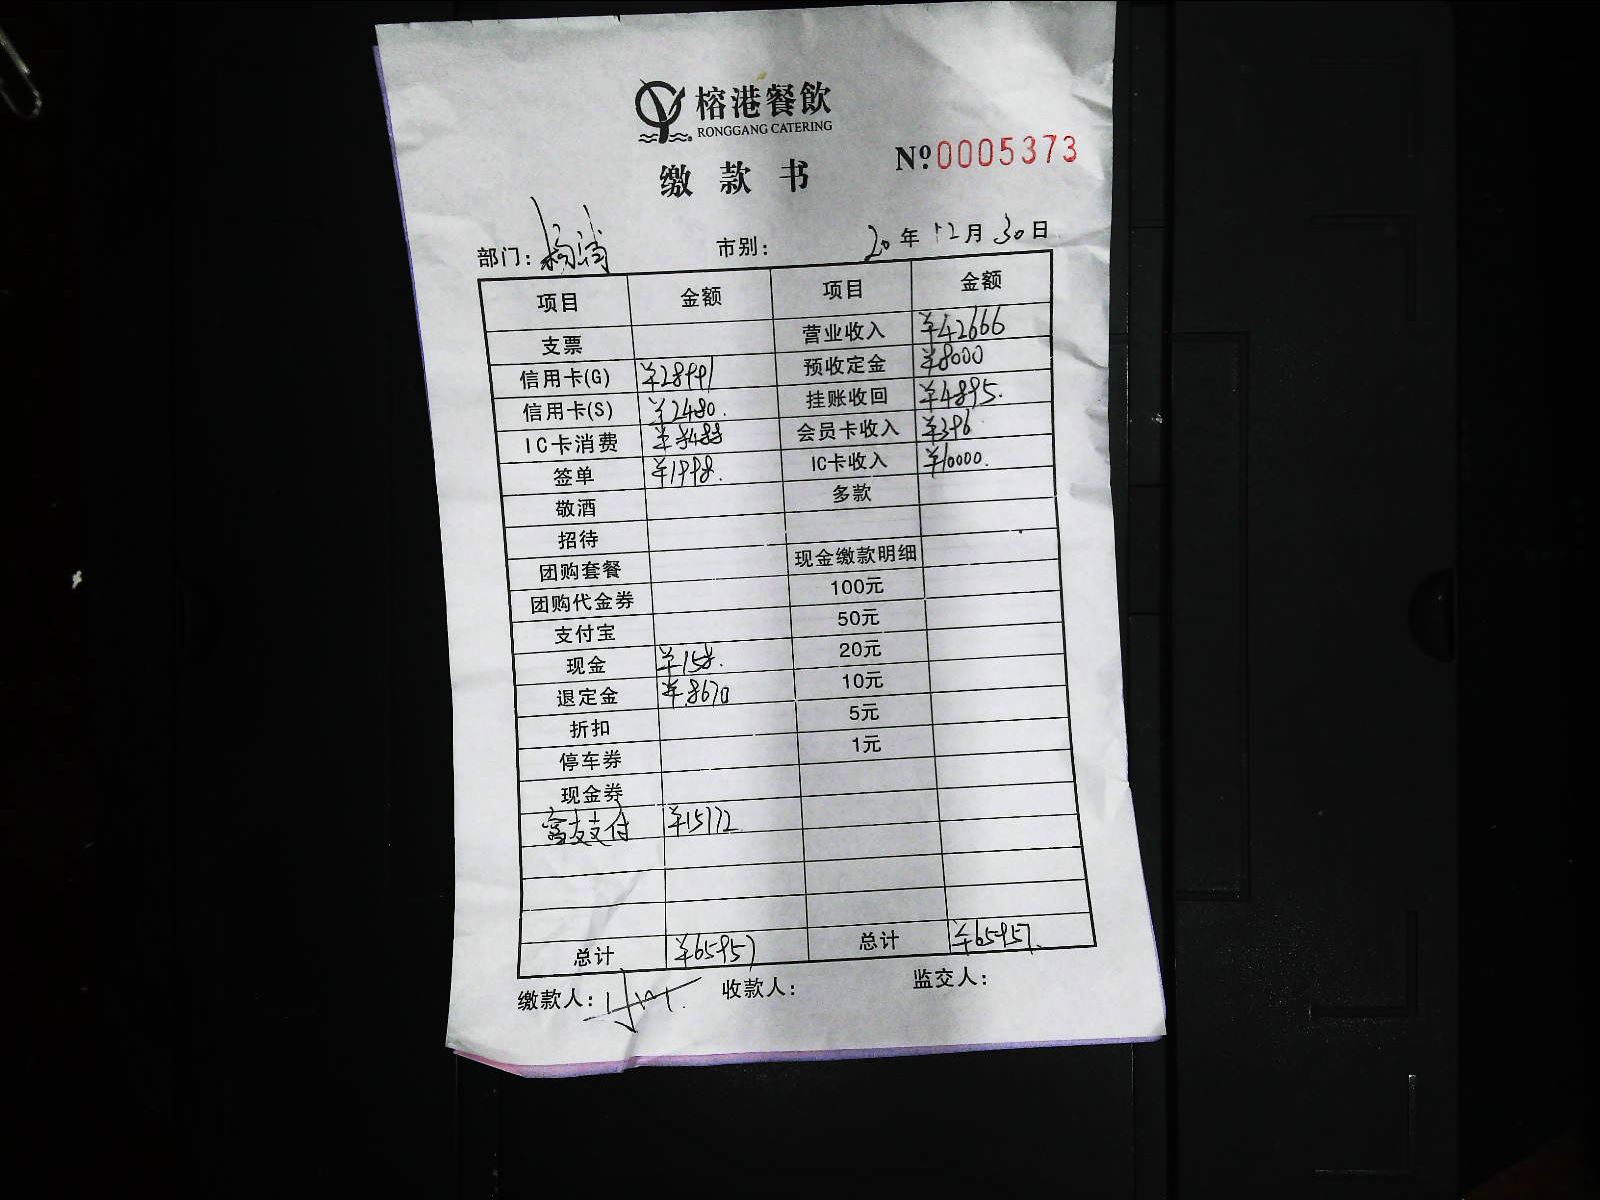 榕港餐飲
RONGGANG CATERING
缴款书
№0005373
部门： 市别： 20年12月30日
项目 金额 项目 金额
支票 营业收入 ¥42666
信用卡(G) ¥28991 预收定金 ¥8000
信用卡(S) ¥2480. 挂账收回 ¥4895.
IC卡消费 ¥8488 会员卡收入 ¥396
签单 ¥1998. IC卡收入 ¥10000.
敬酒 多款
招待
团购套餐 现金缴款明细
团购代金券 100元
支付宝 50元
现金 ¥158. 20元
退定金 ¥8670 10元
折扣 5元
停车券 1元
现金券
富友支付 ¥15172
总计 ¥65957 总计 ¥65957.
缴款人： 收款人： 监交人：